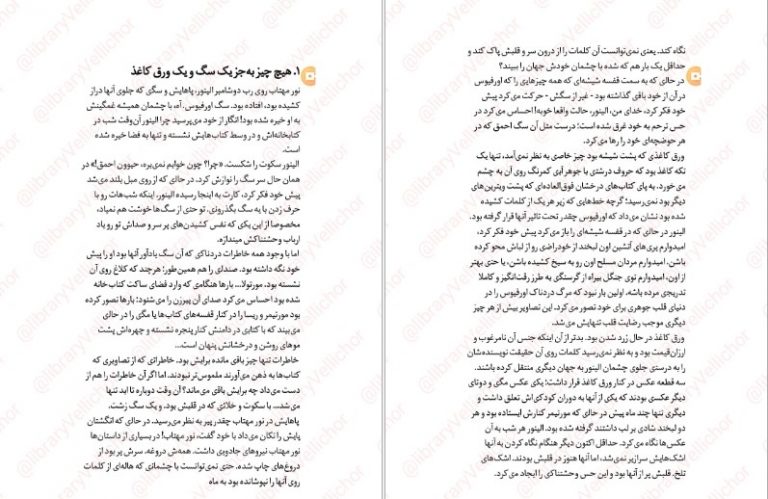 ۱. هیچ چیز به‌جز یک سگ و یک ورق کاغذ
نور مهتاب روی رب دوشامبر الینور، پاهایش و سگی که جلوی آنها دراز
کشیده بود، افتاده بود. سگ اورفیوس. آه، با چشمان همیشه غمگینش
به او خیره شده بود! انگار از خود می‌پرسید چرا الینور آن‌وقت شب در
کتابخانه‌اش و در وسط کتاب‌هایش نشسته و تنها به فضا خیره شده
است.
الینور سکوت را شکست. «چرا؟ چون خوابم نمی‌بره، حیوون احمق!» در
همان حال سر سگ را نوازش کرد. در حالی که از روی مبل بلند می‌شد
پیش خود فکر کرد، کارت به اینجا رسیده الینور. اینکه شب‌هات رو با
حرف زدن با یه سگ بگذرونی. تو حتی از سگ‌ها خوشت هم نمیاد،
مخصوصا از این یکی که نفس کشیدن‌های پر سر و صداش تو رو یاد
ارباب وحشتناکش میندازه.
اما با وجود همه خاطرات دردناکی که آن سگ یادآور آنها بود او را پیش
خود نگه داشته بود. صندلی را هم همین‌طور؛ هرچند که کلاغ روی آن
نشسته بود. مورتولا... بارها هنگامی که وارد فضای ساکت کتاب خانه
شده بود احساس می‌کرد صدای آن پیرزن را می‌شنود؛ بارها تصور کرده
بود مورتیمر و ریسا را در کنار قفسه‌های کتاب‌ها یا مگی را در حالی
می‌بیند که با کتابی در دامنش کنار پنجره نشسته و چهره‌اش پشت
موهای روشن و درخشانش پنهان است...
خاطرات تنها چیز باقی مانده برایش بود. خاطراتی که از تصاویری که
کتاب‌ها به ذهن می‌آورند ملموس‌تر نبودند. اما اگر آن خاطرات را هم از
دست می‌داد چه برایش باقی می‌ماند؟ آن وقت دوباره تا ابد تنها
می‌شد... با سکوت و خلائی که در قلبش بود. و یک سگ زشت.
پاهایش در نور مهتاب چقدر پیر به نظر می‌رسید. در حالی که انگشتان
پایش را تکان می‌داد با خود گفت، نور مهتاب! در بسیاری از داستان‌ها
نور مهتاب نیروهای جادویی داشت. همه‌ش دروغه. سرش پر بود از
دروغ‌های چاپ شده. حتی نمی‌توانست با چشمانی که هاله‌ای از کلمات
روی آنها را نپوشانده بود به ماه
نگاه کند. یعنی نمی‌توانست آن کلمات را از درون سر و قلبش پاک کند و
حداقل یک بار هم که شده با چشمان خودش جهان را ببیند؟
در حالی که به سمت قفسه شیشه‌ای که همه چیزهایی را که اورفیوس
در آن از خود باقی گذاشته بود - غیر از سگش - حرکت می‌کرد پیش
خود فکر کرد، خدای من، الینور، حالت واقعا خوبه! احساس می‌کرد در
حس ترحم به خود غرق شده است؛ درست مثل آن سگ احمق که در
هر حوضچه‌ای خود را رها می‌کرد.
ورق کاغذی که پشت شیشه بود چیز خاصی به نظر نمی‌آمد، تنها یک
تکه کاغذ بود که حروف درشتی با جوهر آبی کمرنگ روی آن به چشم
می خورد. به پای کتاب‌های درخشان فوق‌العاده‌ای که پشت ویترین‌های
دیگر بود نمی‌رسید؛ گرچه خط‌هایی که زیر هر یک از کلمات کشیده
شده بود نشان می‌داد که اورفیوس چقدر تحت تاثیر آنها قرار گرفته بود.
الینور در حالی که در قفسه شیشه‌ای را باز می‌کرد پیش خود فکر کرد،
امیدوارم پری‌های آتشین اون لبخند از خودراضی رو از لباش محو کرده
باشن. امیدوارم مردان مسلح اون رو به سیخ کشیده باشن، یا حتی بهتر
از اون، امیدوارم توی جنگل بیراه از گرسنگی به طرز رقت‌انگیز و کاملا
تدریجی مرده باشه. اولین بار نبود که مرگ دردناک اورفیوس را در
دنیای قلب جوهری برای خود تصور می‌کرد. این تصاویر بیش از هر چیز
دیگری موجب رضایت قلب تنهایش می‌شد.
ورق کاغذ در حال زرد شدن بود. بدتر از آن اینکه جنس آن نامرغوب و
ارزان‌قیمت بود و به نظر نمی‌رسید کلمات روی آن حقیقت نویسنده‌شان
را به درستی جلوی چشمان الینور به جهان دیگری منتقل کرده باشند.
سه قطعه عکس در کنار ورق کاغذ قرار داشت؛ یکی عکس مگی و دوتای
دیگر عکسی بودند که یکی از آنها به دوران کودکی‌اش تعلق داشت و
دیگری تنها چند ماه پیش در حالی که مورتیمر کنارش ایستاده بود و هر
دو لبخند شادی بر لب داشتند گرفته شده بود. الینور هر شب به آن
عکس‌ها نگاه می‌کرد. حداقل اکنون دیگر هنگام نگاه کردن به آنها
اشک‌هایش سرازیر نمی‌شد، اما آنها هنوز در قلبش بودند. اشک‌های
تلخ. قلبش پر از آنها بود و این حس وحشتناکی را ایجاد می‌کرد.
@libraryVellichor